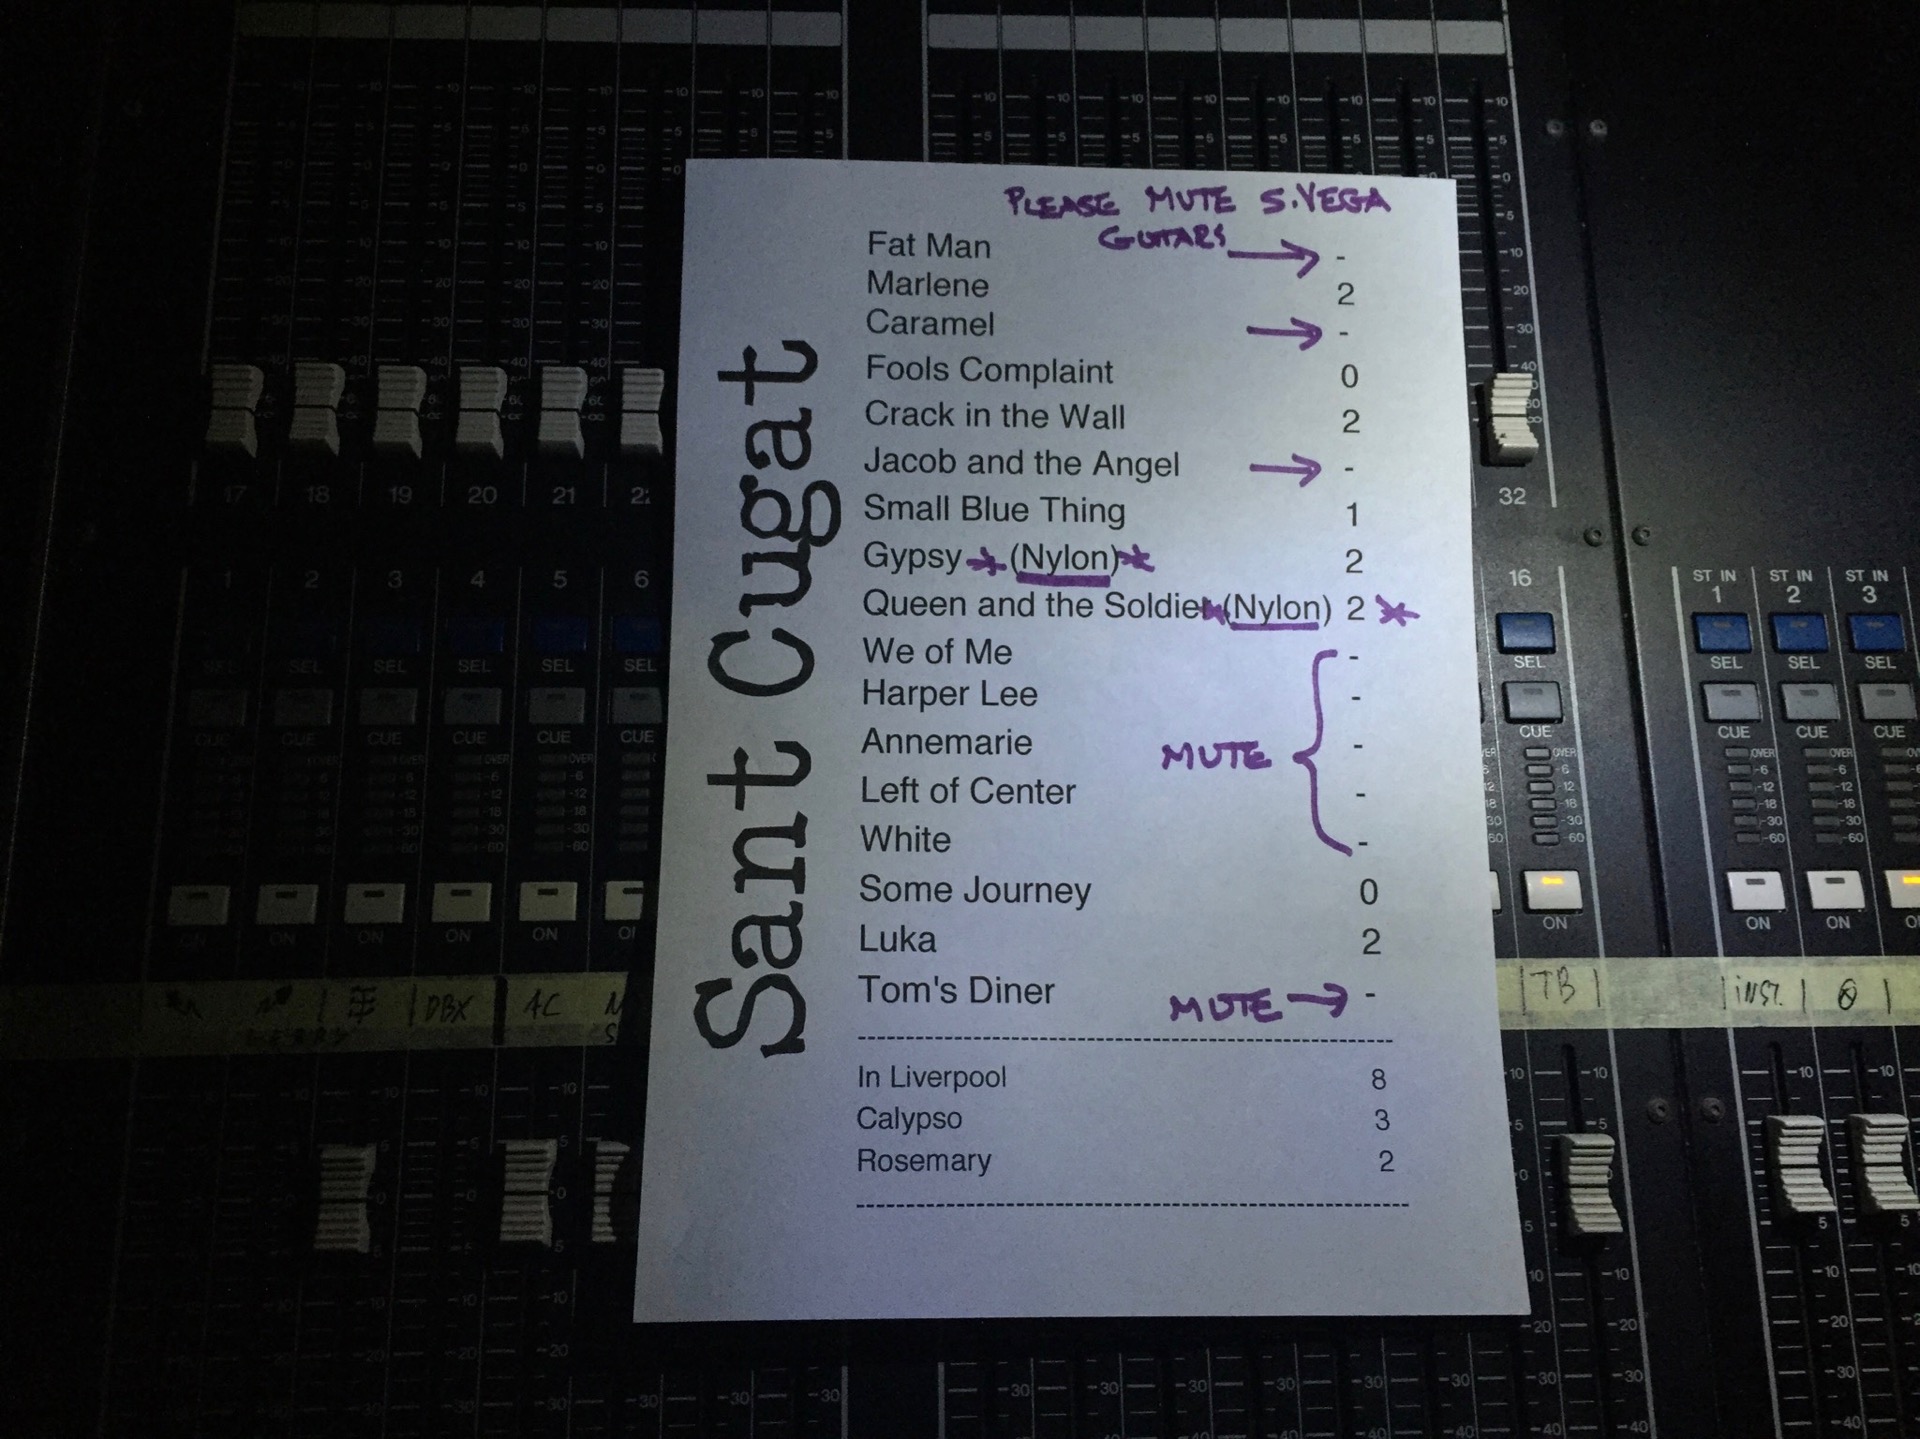 PLEASE MUTE S.VEGA
GUITARS
Sant Cugat
Fat Man -
Marlene 2
Caramel -
Fools Complaint 0
Crack in the Wall 2
Jacob and the Angel -
Small Blue Thing 1
Gypsy * (Nylon) * 2
Queen and the Soldier (Nylon) 2 *
We of Me -
Harper Lee -
Annemarie -
MUTE
Left of Center -
White -
Some Journey 0
Luka 2
Tom's Diner MUTE -
In Liverpool 8
Calypso 3
Rosemary 2
17 18 19 20 21 32
1 2 3 4 5 6 16
ST IN 1 ST IN 2 ST IN 3
SEL SEL SEL SEL SEL SEL SEL SEL SEL SEL
CUE CUE CUE CUE CUE CUE CUE CUE CUE CUE
ON ON ON ON ON ON ON
DBX AC TB INST.